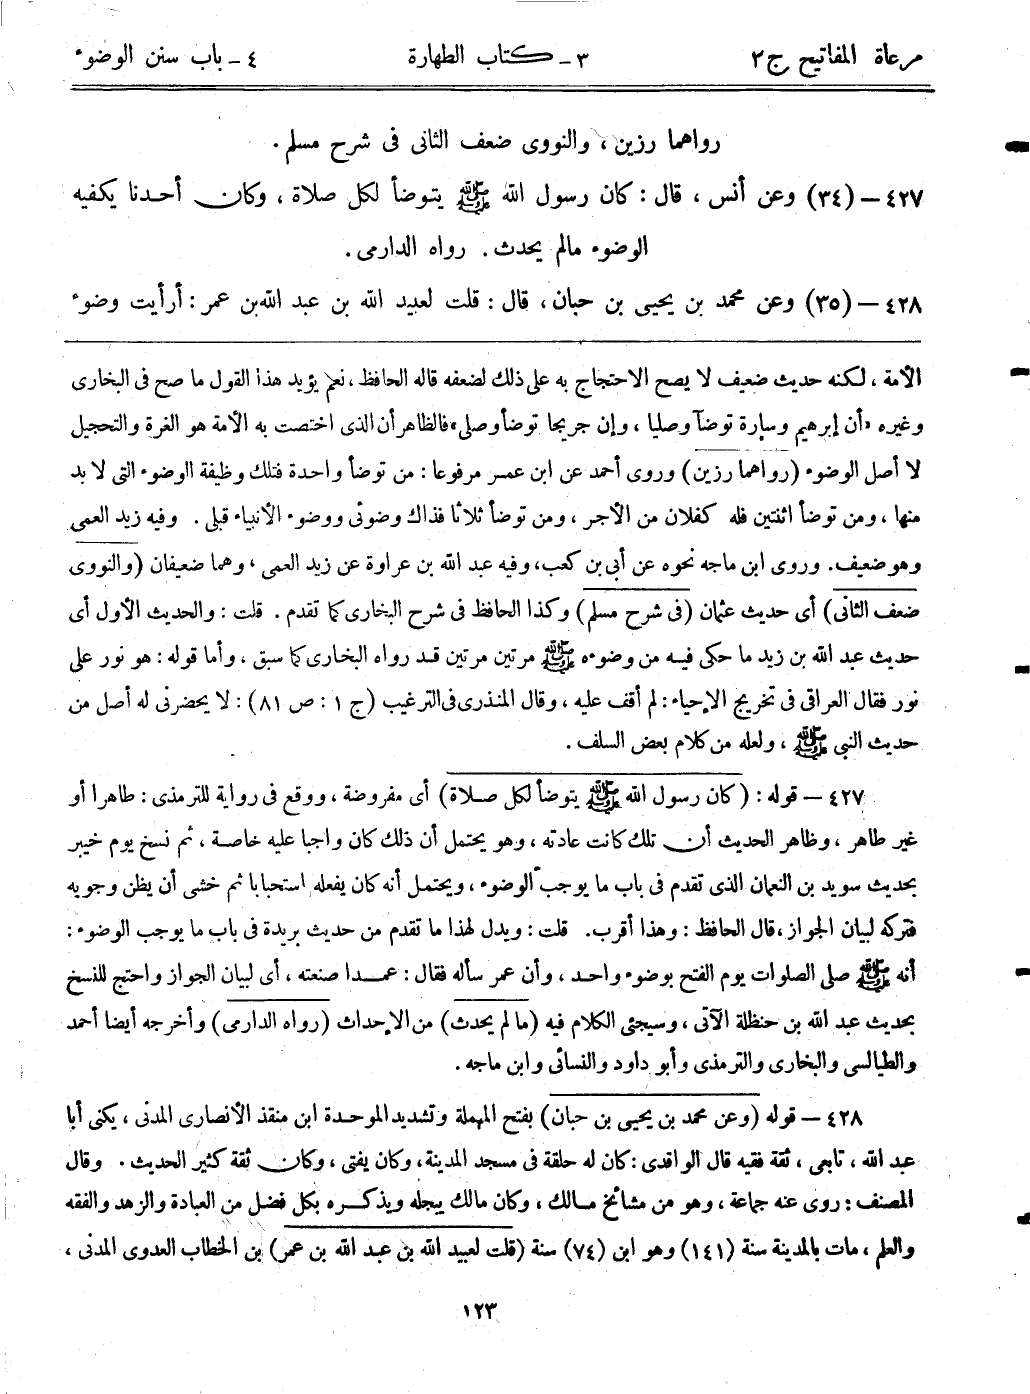 مرعاة المفاتيح ج٢ ٣ - كتاب الطهارة ٤ - باب سنن الوضوء
رواهما رزين، والنووى ضعف الثانى فى شرح مسلم.
٤٢٧ – (٣٤) وعن أنس، قال: كان رسول الله ﷺ يتوضأ لكل صلاة، وكان أحدنا يكفيه
الوضوء مالم يحدث. رواه الدارمى.
٤٢٨ – (٣٥) وعن محمد بن يحيى بن حبان، قال: قلت لعبيد الله بن عبد الله بن عمر: أرأيت وضوء
الأمة، لكنه حديث ضعيف لا يصح الاحتجاج به على ذلك لضعفه قاله الحافظ، نعم يؤيد هذا القول ما صح فى البخارى
وغيره «أن إبرهيم وسارة توضآ وصليا، وإن جريجا توضأ وصلى» فالظاهر أن الذى اختصت به الأمة هو الغرة والتحجيل
لا أصل الوضوء (رواهما رزين) وروى أحمد عن ابن عمر مرفوعا: من توضأ واحدة فتلك وظيفة الوضوء التى لا بد
منها، ومن توضأ اثنتين فله كفلان من الأجر، ومن توضأ ثلاثا فذاك وضوئى ووضوء الأنبياء قبلى. وفيه زيد العمى
وهو ضعيف. وروى ابن ماجه نحوه عن أبى بن كعب، وفيه عبد الله بن عراوة عن زيد العمى، وهما ضعيفان (والنووى
ضعف الثانى) أى حديث عثمان (فى شرح مسلم) وكذا الحافظ فى شرح البخارى كما تقدم. قلت: والحديث الأول أى
حديث عبد الله بن زيد ما حكى فيه من وضوءه ﷺ مرتين مرتين قد رواه البخارى كما سبق، وأما قوله: هو نور على
نور فقال العراقى فى تخريج الإحياء: لم أقف عليه، وقال المنذرى فى الترغيب (ج ١: ص ٨١): لا يحضرنى له أصل من
حديث النبى ﷺ، ولعله من كلام بعض السلف.
٤٢٧ – قوله: (كان رسول الله ﷺ يتوضأ لكل صلاة) أى مفروضة، ووقع فى رواية للترمذى: طاهرا أو
غير طاهر، وظاهر الحديث أن تلك كانت عادته، وهو يحتمل أن ذلك كان واجبا عليه خاصة، ثم نسخ يوم خيبر
بحديث سويد بن النعمان الذى تقدم فى باب ما يوجب الوضوء، ويحتمل أنه كان يفعله استحبابا ثم خشى أن يظن وجوبه
فتركه لبيان الجواز، قال الحافظ: وهذا أقرب. قلت: ويدل لهذا ما تقدم من حديث بريدة فى باب ما يوجب الوضوء:
أنه ﷺ صلى الصلوات يوم الفتح بوضوء واحد، وأن عمر سأله فقال: عمدا صنعته، أى لبيان الجواز واحتج للنسخ
بحديث عبد الله بن حنظلة الآتى، وسيجئى الكلام فيه (ما لم يحدث) من الإحداث (رواه الدارمى) وأخرجه أيضا أحمد
والطيالسى والبخارى والترمذى وأبو داود والنسائى وابن ماجه.
٤٢٨ – قوله (وعن محمد بن يحيى بن حبان) بفتح المهملة وتشديد الموحدة ابن منقذ الأنصارى المدنى، يكنى أبا
عبد الله، تابعى، ثقة فقيه قال الواقدى: كان له حلقة فى مسجد المدينة، وكان يفتى، وكان ثقة كثير الحديث. وقال
المصنف: روى عنه جماعة، وهو من مشائخ مالك، وكان مالك يبجله ويذكره بكل فضل من العبادة والزهد والفقه
والعلم، مات بالمدينة سنة (١٤١) وهو ابن (٧٤) سنة (قلت لعبيد الله بن عبد الله بن عمر) بن الخطاب العدوى المدنى،
١٢٣